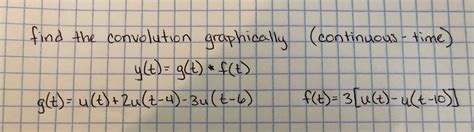 find the convolution graphically (continuous-time)
y(t) = g(t) * f(t)
g(t) = u(t) + 2u(t-4) - 3u(t-6) f(t) = 3[u(t) - u(t-10)]